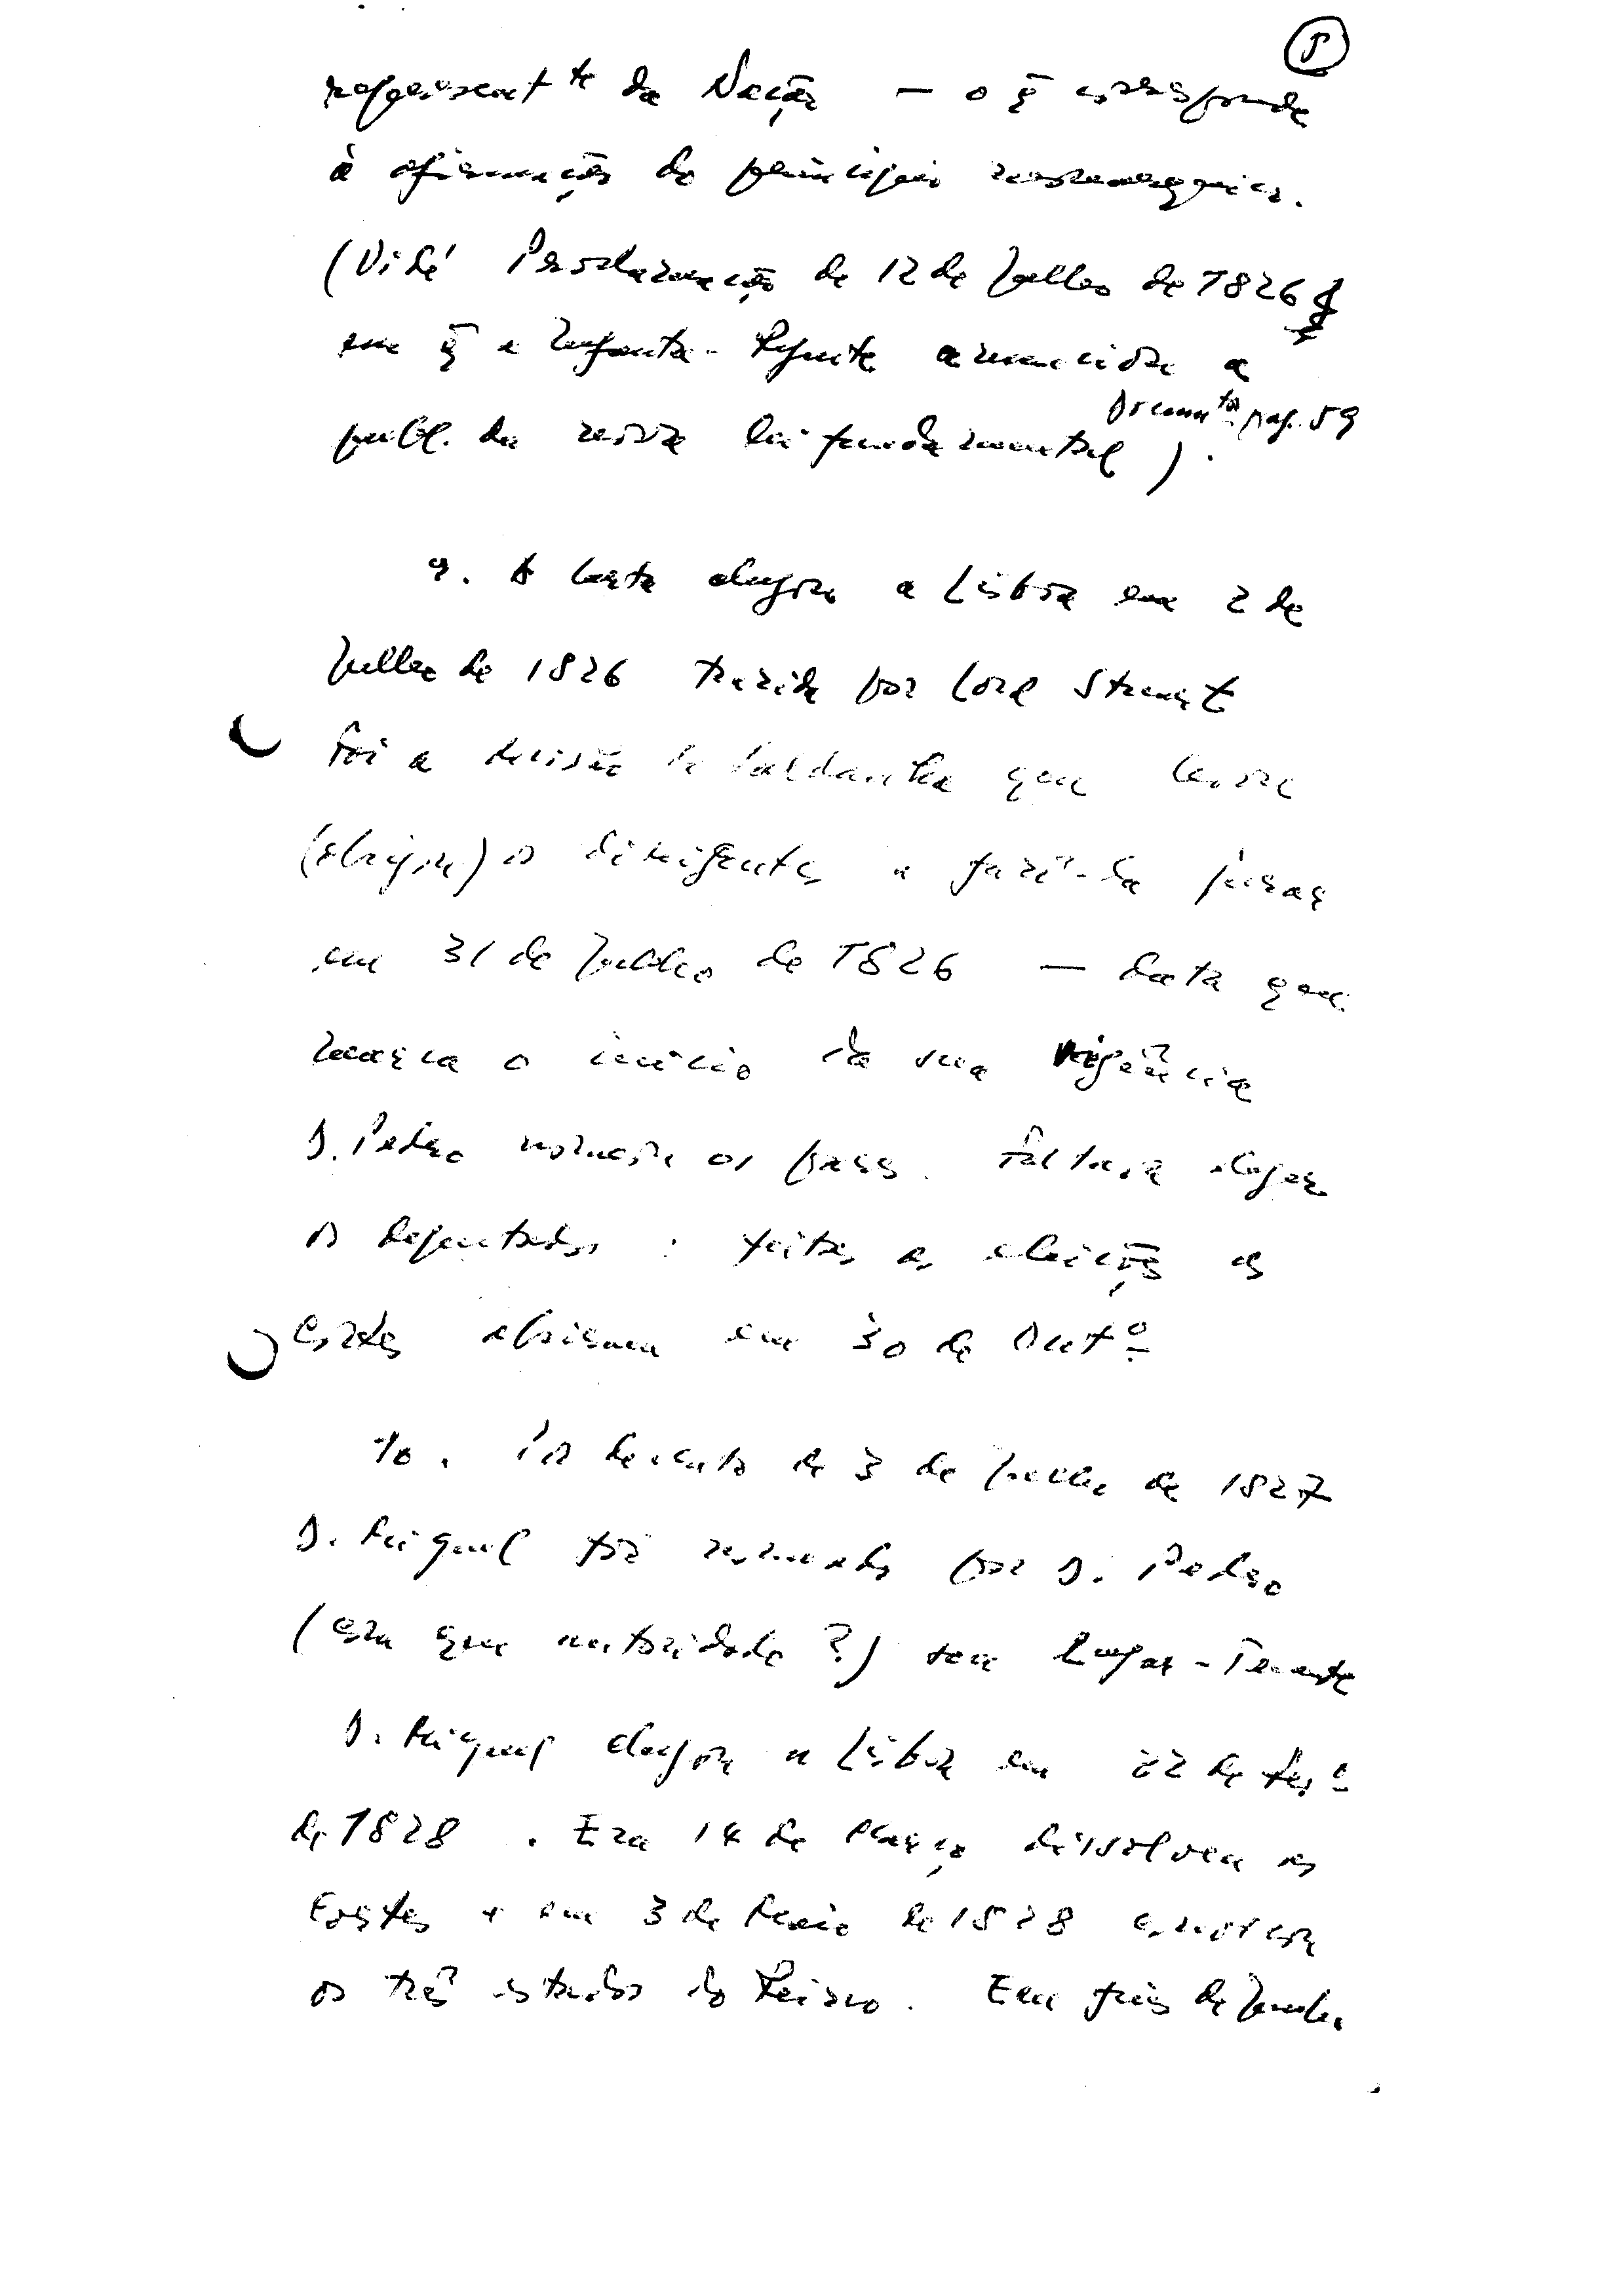 5
representte da Nação — o q̄ corresponde
à afirmação do princípio monarquico.
(Vidé Proclamação de 12 de Julho de 1826
em q̄ a Infanta-Regente anunciou a
Documtos pag. 59
publ. da nova lei fundamental).
9. A Carta chegou a Lisboa em 2 de
Julho de 1826 trazida por Lord Stuart
Foi a decisão de Saldanha que levou
(obrigou) os dirigentes a fazê-la jurar
em 31 de Julho de 1826 — data que
marca o início da sua vigência
D. Pedro nomeou os pares. Faltava eleger
os deputados: feitas as eleições as
Cortes abriram em 30 de Outº
10. Por decreto de 3 de Julho de 1827
D. Miguel foi nomeado por D. Pedro
(com que autoridade?) seu Lugar-Tenente
D. Miguel chegou a Lisboa em 22 de Fevº
de 1828. Em 14 de Março dissolveu as
Cortes e em 3 de Maio de 1828 convocou
os três estados do Reino. Em fins de Junho